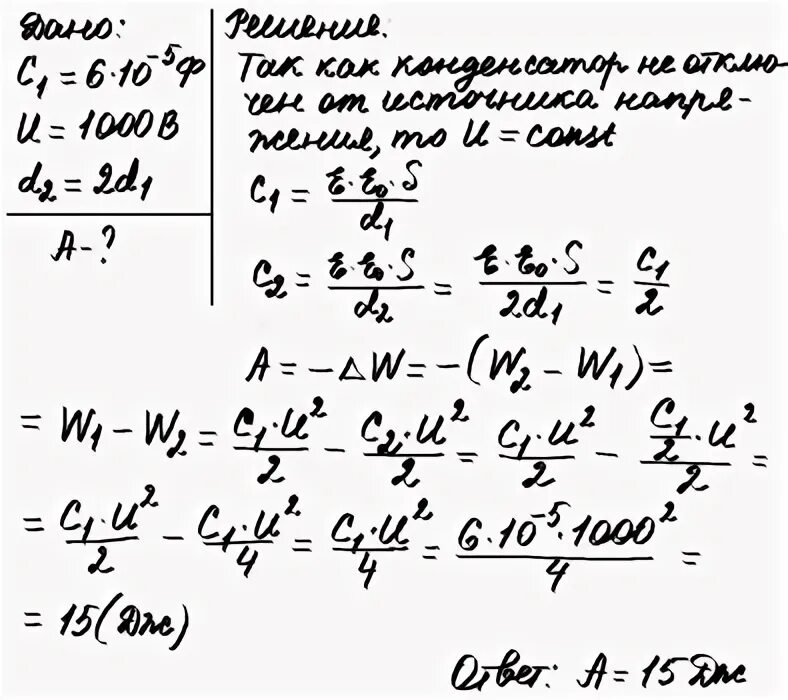 Дано:
C₁ = 6·10⁻⁵ Ф
U = 1000 В
d₂ = 2d₁
A - ?
Решение.
Так как конденсатор не отклю-
чен от источника напря-
жения, то U = const
C₁ = ε·ε₀·S / d₁
C₂ = ε·ε₀·S / d₂ = ε·ε₀·S / 2d₁ = C₁ / 2
A = -△W = -(W₂ - W₁) =
= W₁ - W₂ = C₁·U² / 2 - C₂·U² / 2 = C₁·U² / 2 - C₁/2·U² / 2 =
= C₁·U² / 2 - C₁·U² / 4 = C₁·U² / 4 = 6·10⁻⁵·1000² / 4 =
= 15 (Дж)
Ответ: A = 15 Дж